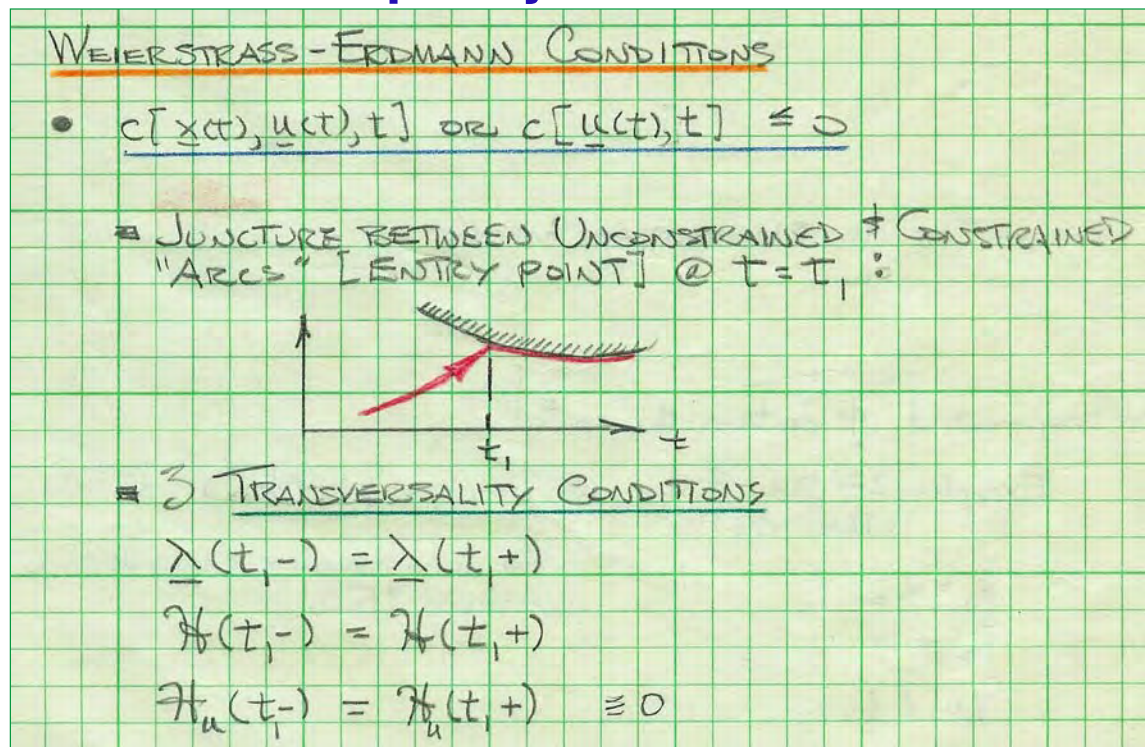 WEIERSTRASS-ERDMANN CONDITIONS
• c[x(t), u(t), t] OR c[u(t), t] ≤ 0
JUNCTURE BETWEEN UNCONSTRAINED & CONSTRAINED
"ARCS" [ENTRY POINT] @ t = t₁ :
t
t₁
3 TRANSVERSALITY CONDITIONS
λ(t₁-) = λ(t₁+)
ℋ(t₁-) = ℋ(t₁+)
ℋᵤ(t₁-) = ℋᵤ(t₁+) ≡ 0